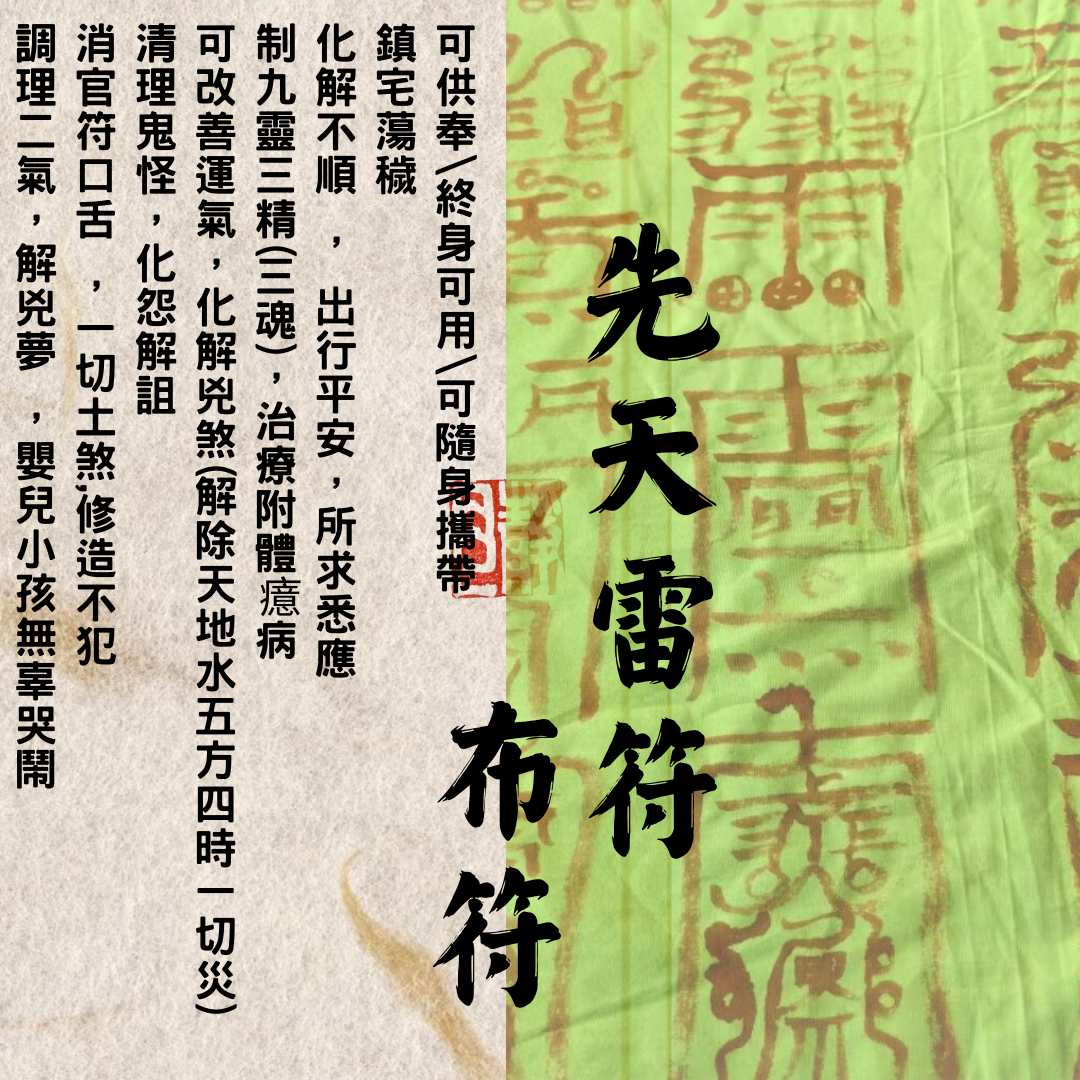 先天雷符
布符
可供奉/終身可用/可隨身攜帶
鎮宅蕩穢
化解不順，出行平安，所求悉應
制九靈三精(三魂)，治療附體癔病
可改善運氣，化解兇煞(解除天地水五方四時一切災)
清理鬼怪，化怨解詛
消官符口舌，一切土煞,修造不犯
調理二氣，解兇夢，嬰兒小孩無辜哭鬧